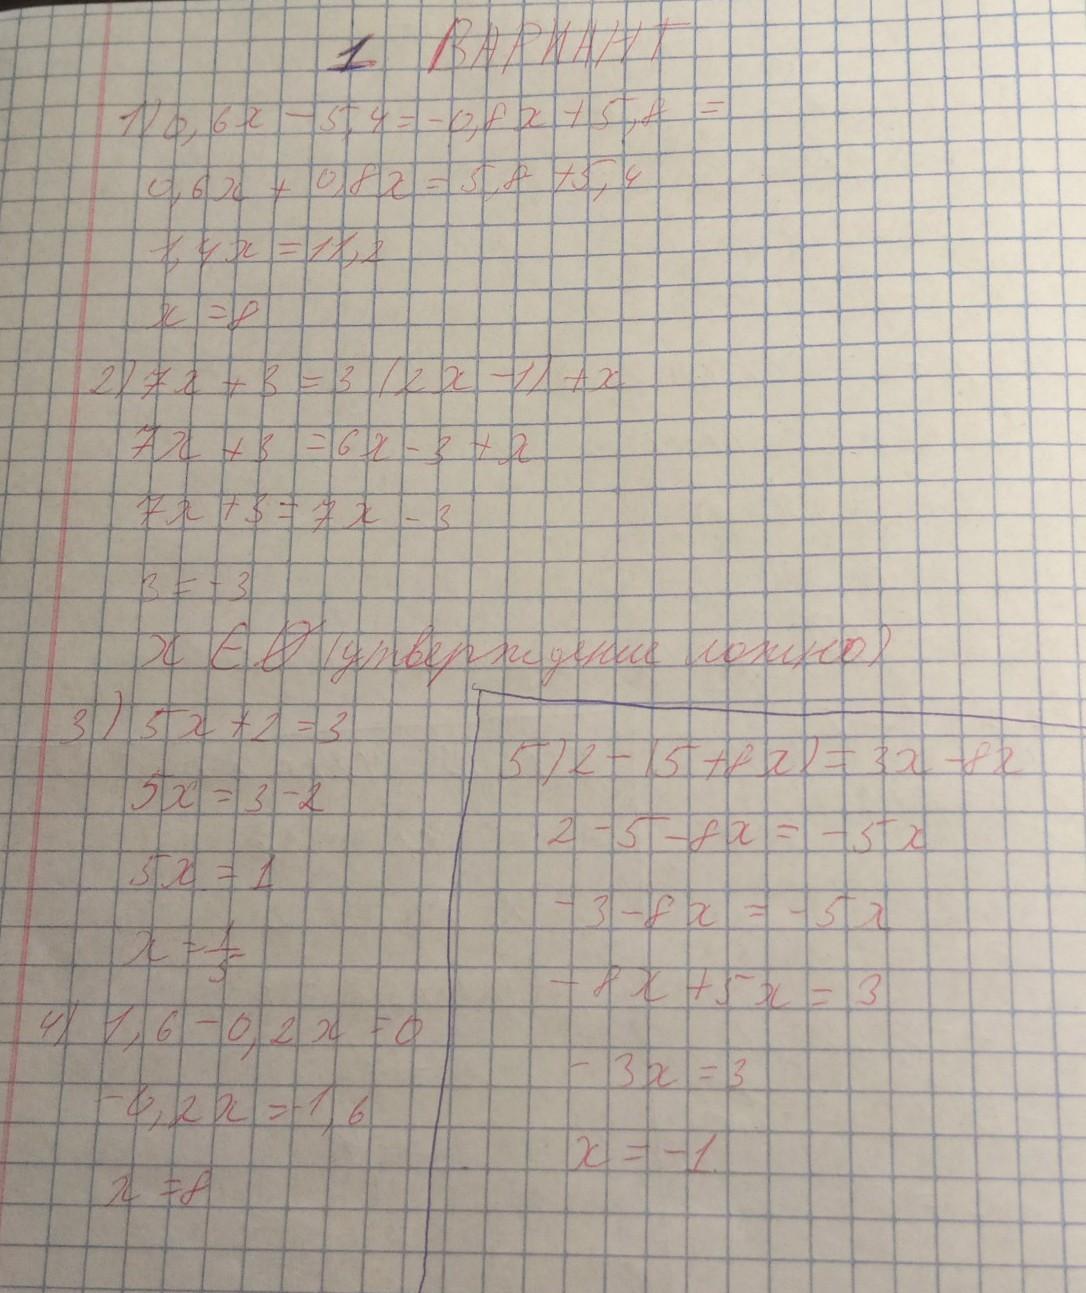 1 ВАРИАНТ
1) 0,6x - 5,4 = -0,8x + 5,8 =
0,6x + 0,8x = 5,8 + 5,4
1,4x = 11,2
x = 8
2) 7x + 3 = 3 (2x - 1) + x
7x + 3 = 6x - 3 + x
7x + 3 = 7x - 3
3 = -3
x ∈ Ø (утверждение ложно)
3) 5x + 2 = 3
5x = 3 - 2
5x = 1
x = 1/5
4) 1,6 - 0,2x = 0
-0,2x = -1,6
x = 8
5) 2 - (5 + 8x) = 3x - 8x
2 - 5 - 8x = -5x
-3 - 8x = -5x
-8x + 5x = 3
-3x = 3
x = -1